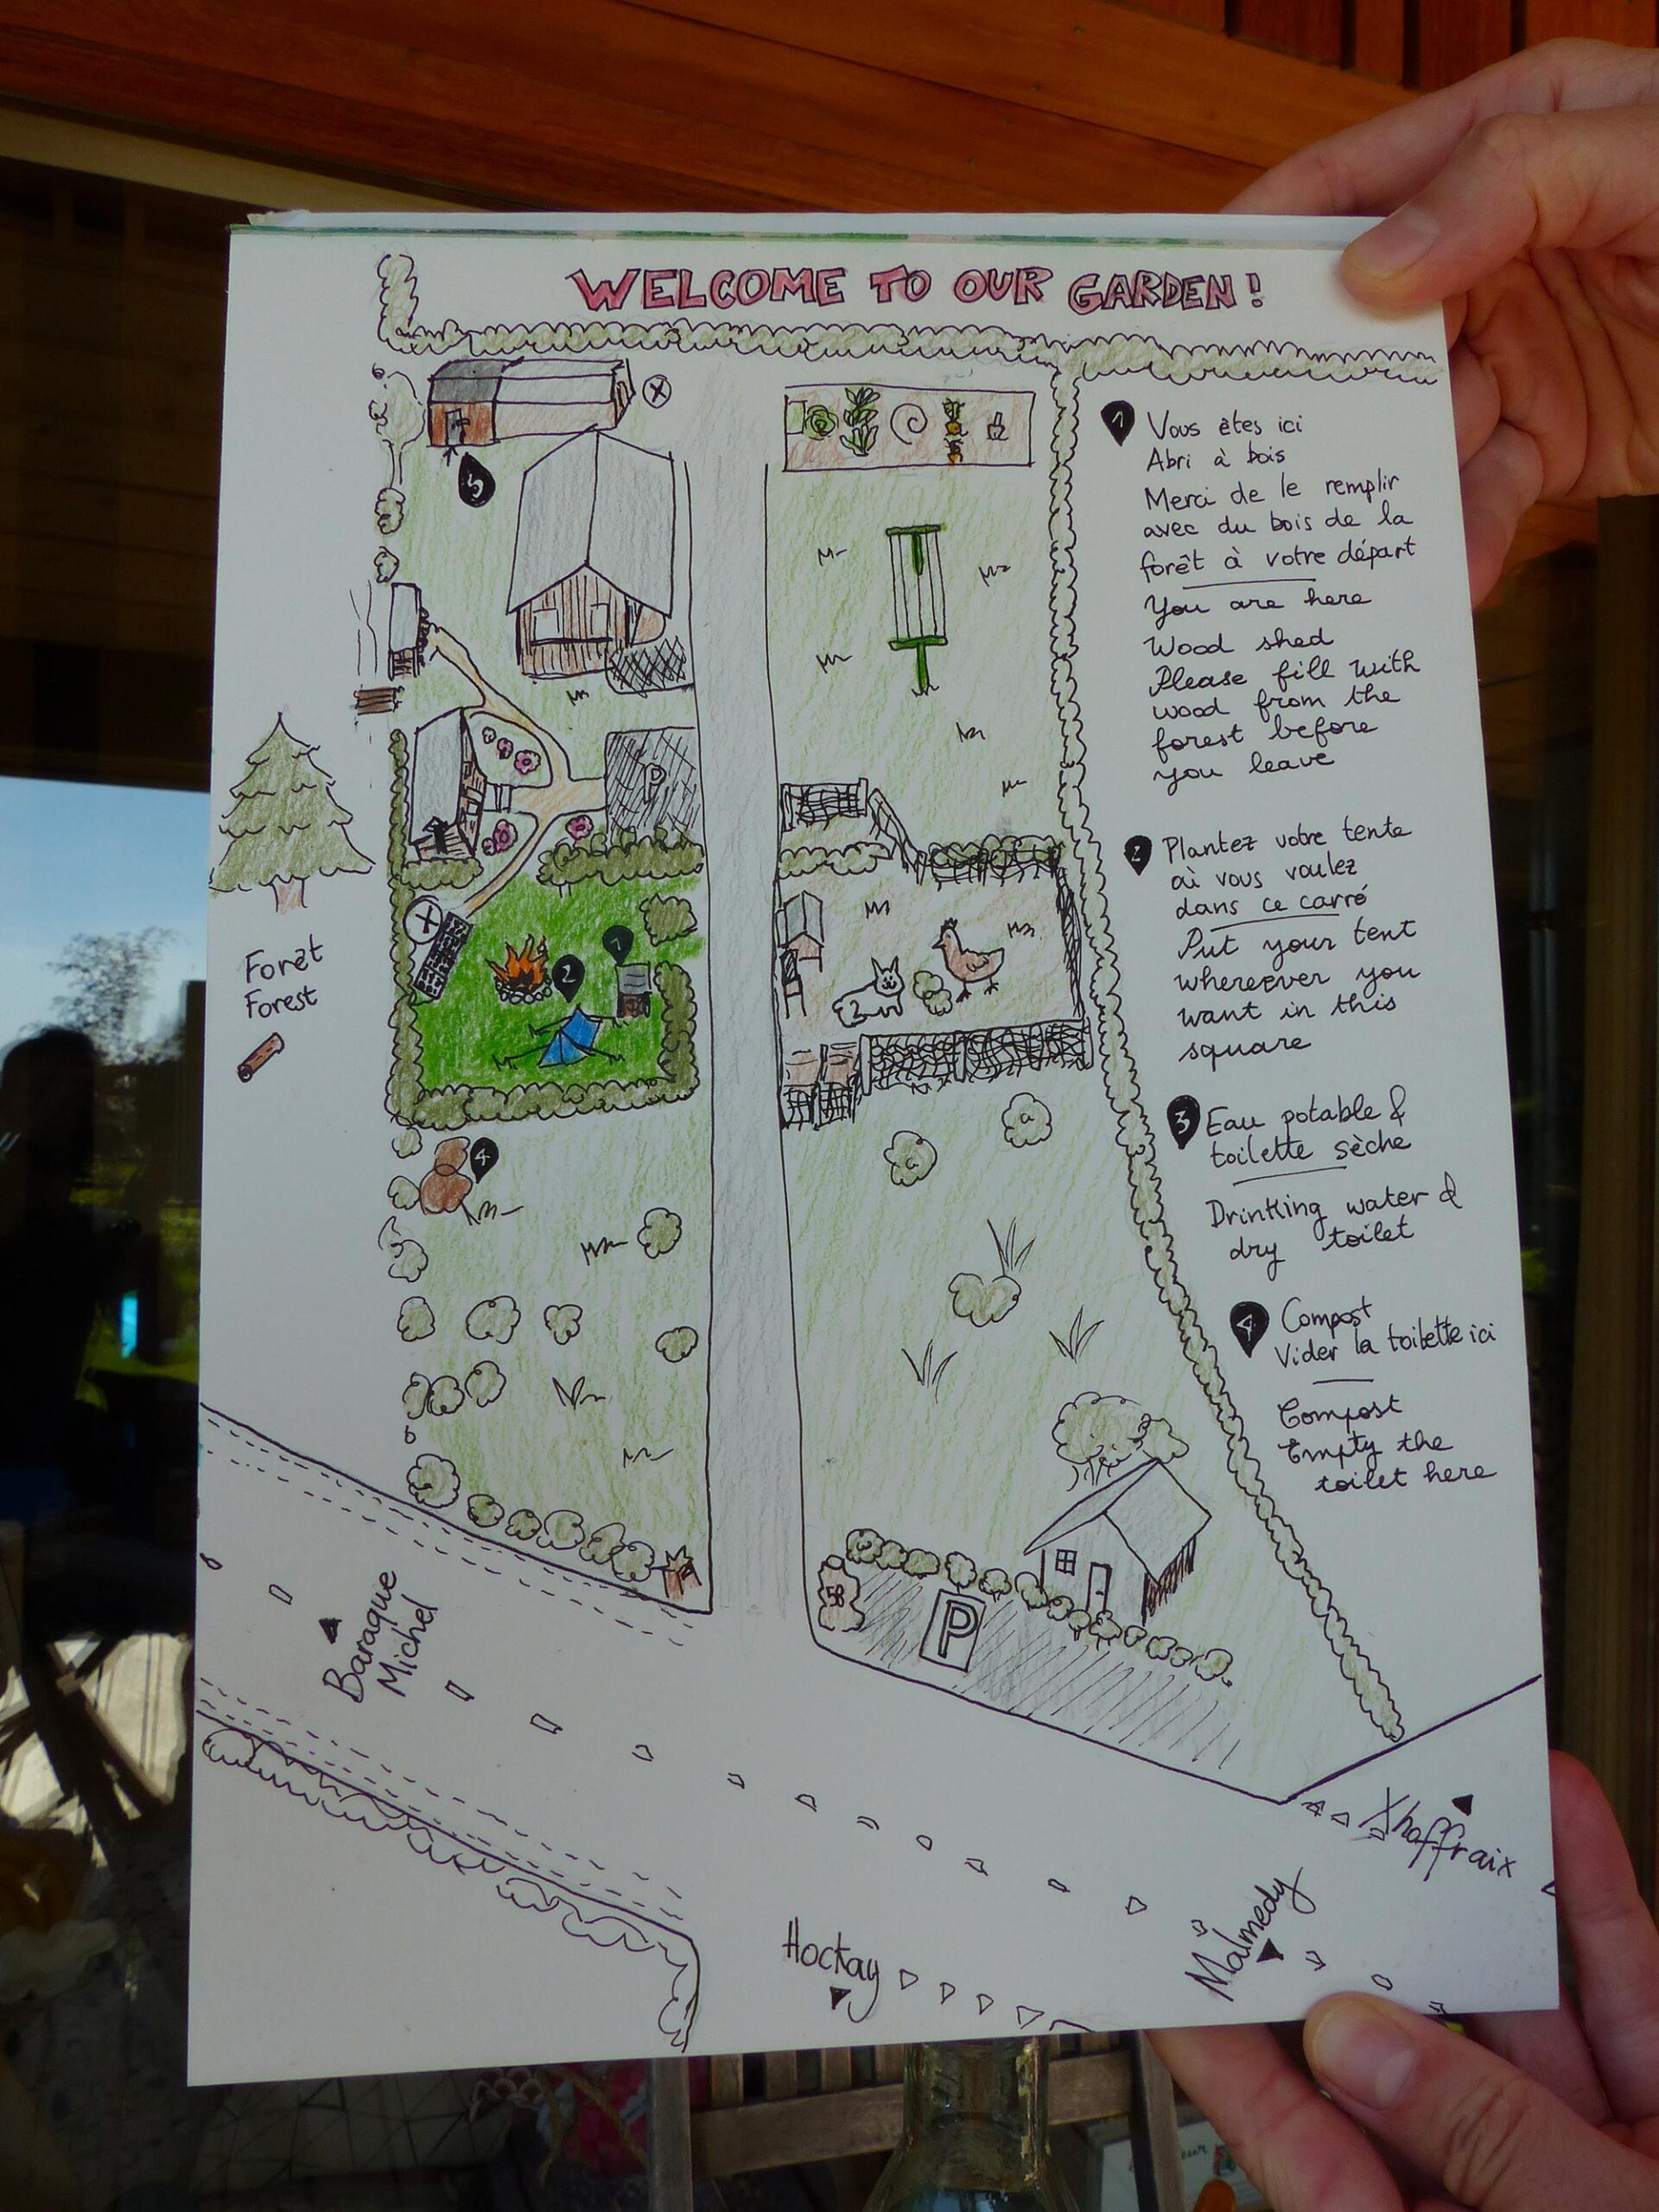 WELCOME TO OUR GARDEN!
1 Vous êtes ici
Abri à bois
Merci de le remplir
avec du bois de la
forêt à votre départ
You are here
Wood shed
Please fill with
wood from the
forest before
you leave
2 Plantez votre tente
où vous voulez
dans ce carré
Put your tent
wherever you
want in this
square
3 Eau potable &
toilette sèche
Drinking water &
dry toilet
4 Compost
Vider la toilette ici
Compost
Empty the
toilet here
3
P
Forêt
Forest
1
2
4
58
P
Baraque
Michel
Xhoffraix
Malmedy
Hockay